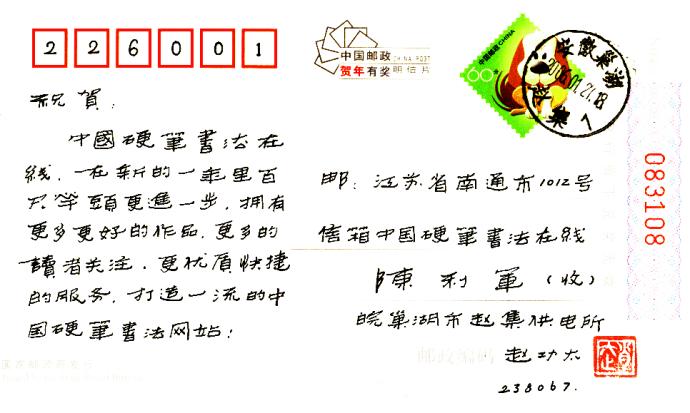 226001
中国邮政 CHINA POST
贺年有奖 明信片
中国邮政 CHINA
60分
安徽巢湖
2006.01.21.18
祝賀：
中國硬筆書法在
线，在新的一年里百
尺竿頭更進一步，拥有
更多更好的作品，更多的
讀者关注，更优质快捷
的服务，打造一流的中
国硬筆書法网站！
邮：江苏省南通市1012号
信箱中国硬筆書法在線
陳利軍（收）
皖巢湖市赵集供电所
邮政编码
赵功大
238067.
083108
国家邮政局发行